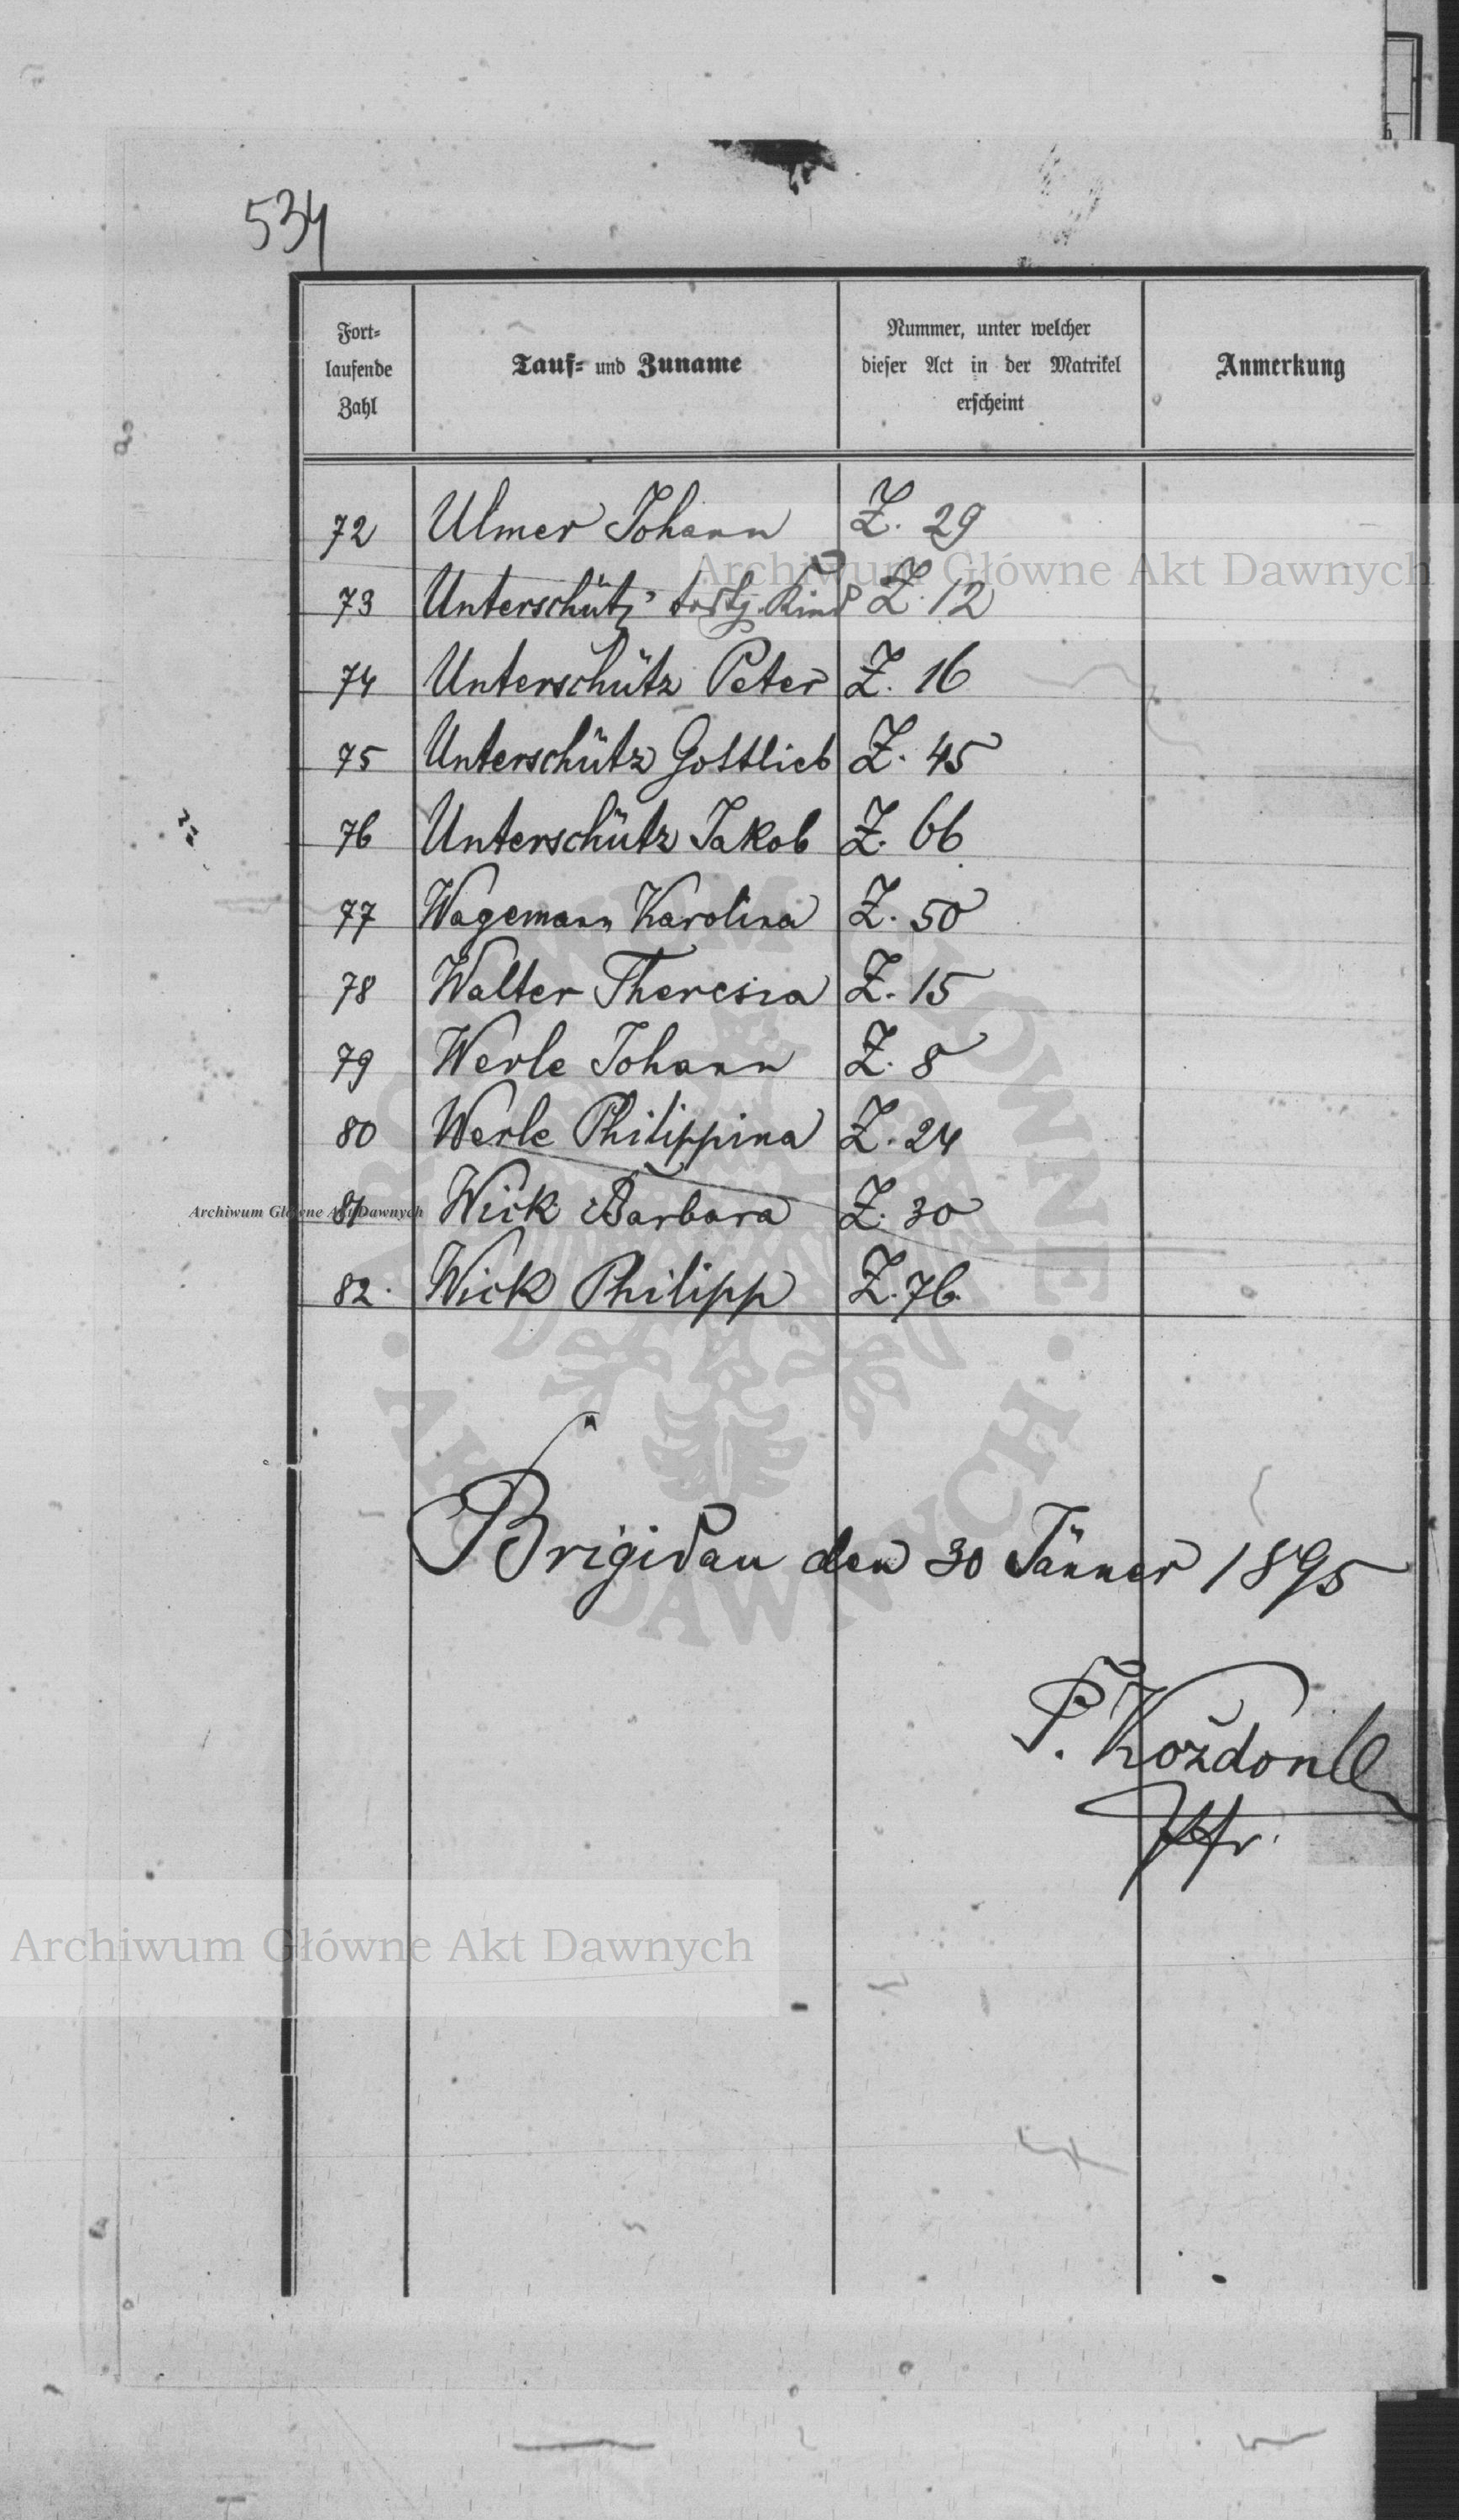 534
Fort-
laufende
Zahl
Tauf- und Zuname
Nummer, unter welcher
dieser Act in der Matrikel
erscheint
Anmerkung
72 Ulmer Johann Z. 29
73 Unterschütz todtg. Kind Z. 12
74 Unterschütz Peter Z. 16
75 Unterschütz Gottlieb Z. 45
76 Unterschütz Jakob Z. 66
77 Wagemann Karolina Z. 50
78 Walter Theresia Z. 15
79 Werle Johann Z. 8
80 Werle Philippina Z. 24
81 Wick Barbara Z. 30
82. Wick Philipp Z. 76.
Brigidau den 30 Jänner 1895
P. Koždon
Pfr.
Archiwum Główne Akt Dawnych
Archiwum Główne Akt Dawnych
Archiwum Główne Akt Dawnych
ARCHIWUM GŁÓWNE · AKT DAWNYCH ·